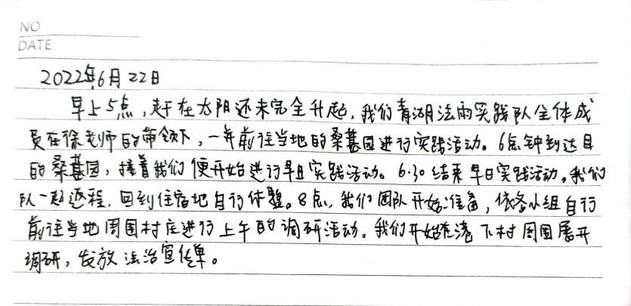 NO
DATE
2022年6月22日
早上5点，赶在太阳还未完全升起，我们青湖法雨实践队全体成
员在徐老师的带领下，一年前往当地的桑基园进行实践活动。6点钟到达目
的桑基园，接着我们便开始进行早且实践活动。6:30结束早日实践活动，我们
队一起返程，回到住宿地自行休整。8点，我们团队开始准备，依各小组自行
前往当地周围村庄进行上午的调研活动，我们开始在 下村周围展开
调研，发放法治宣传单。